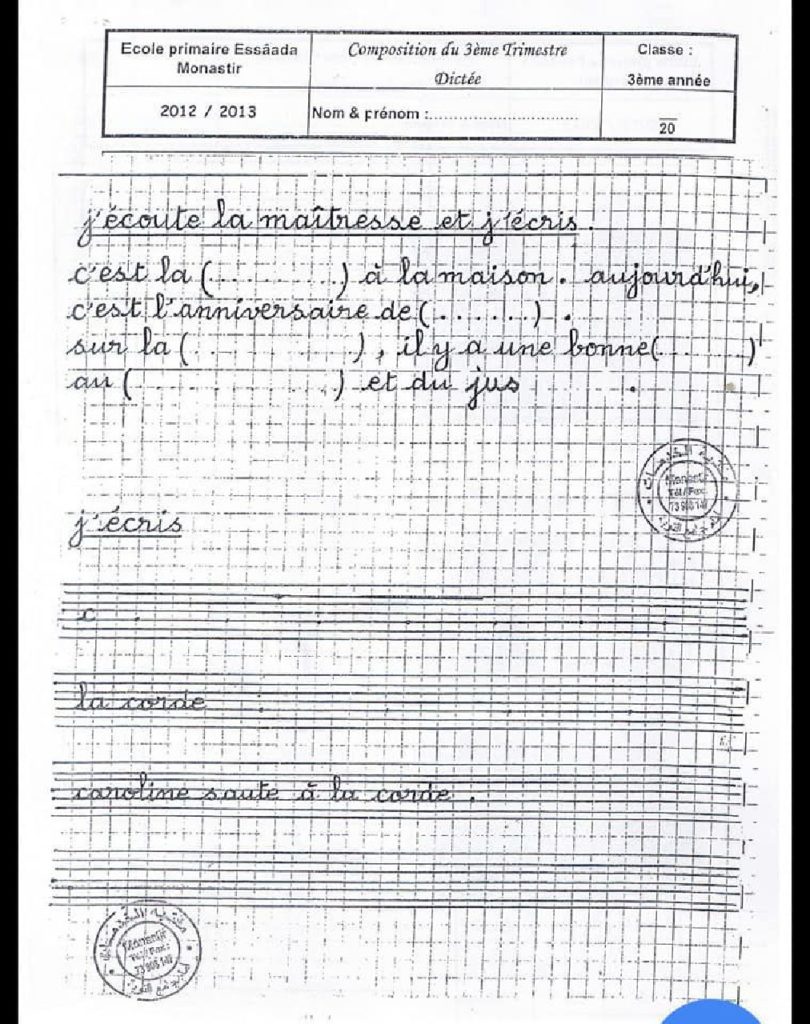 Ecole primaire Essâada
Monastir
Composition du 3ème Trimestre
Dictée
Classe :
3ème année
2012 / 2013
Nom & prénom :..............................
20
j'écoute la maîtresse et j'écris.
c'est la (............) à la maison. aujourd'hui,
c'est l'anniversaire de (.......).
sur la ( ), il y a une bonne(... )
au ( ) et du jus .
j'écris
c
la corde
caroline saute à la corde.
Monastir
Tél/Fax:
Monastir
Tél/Fax: